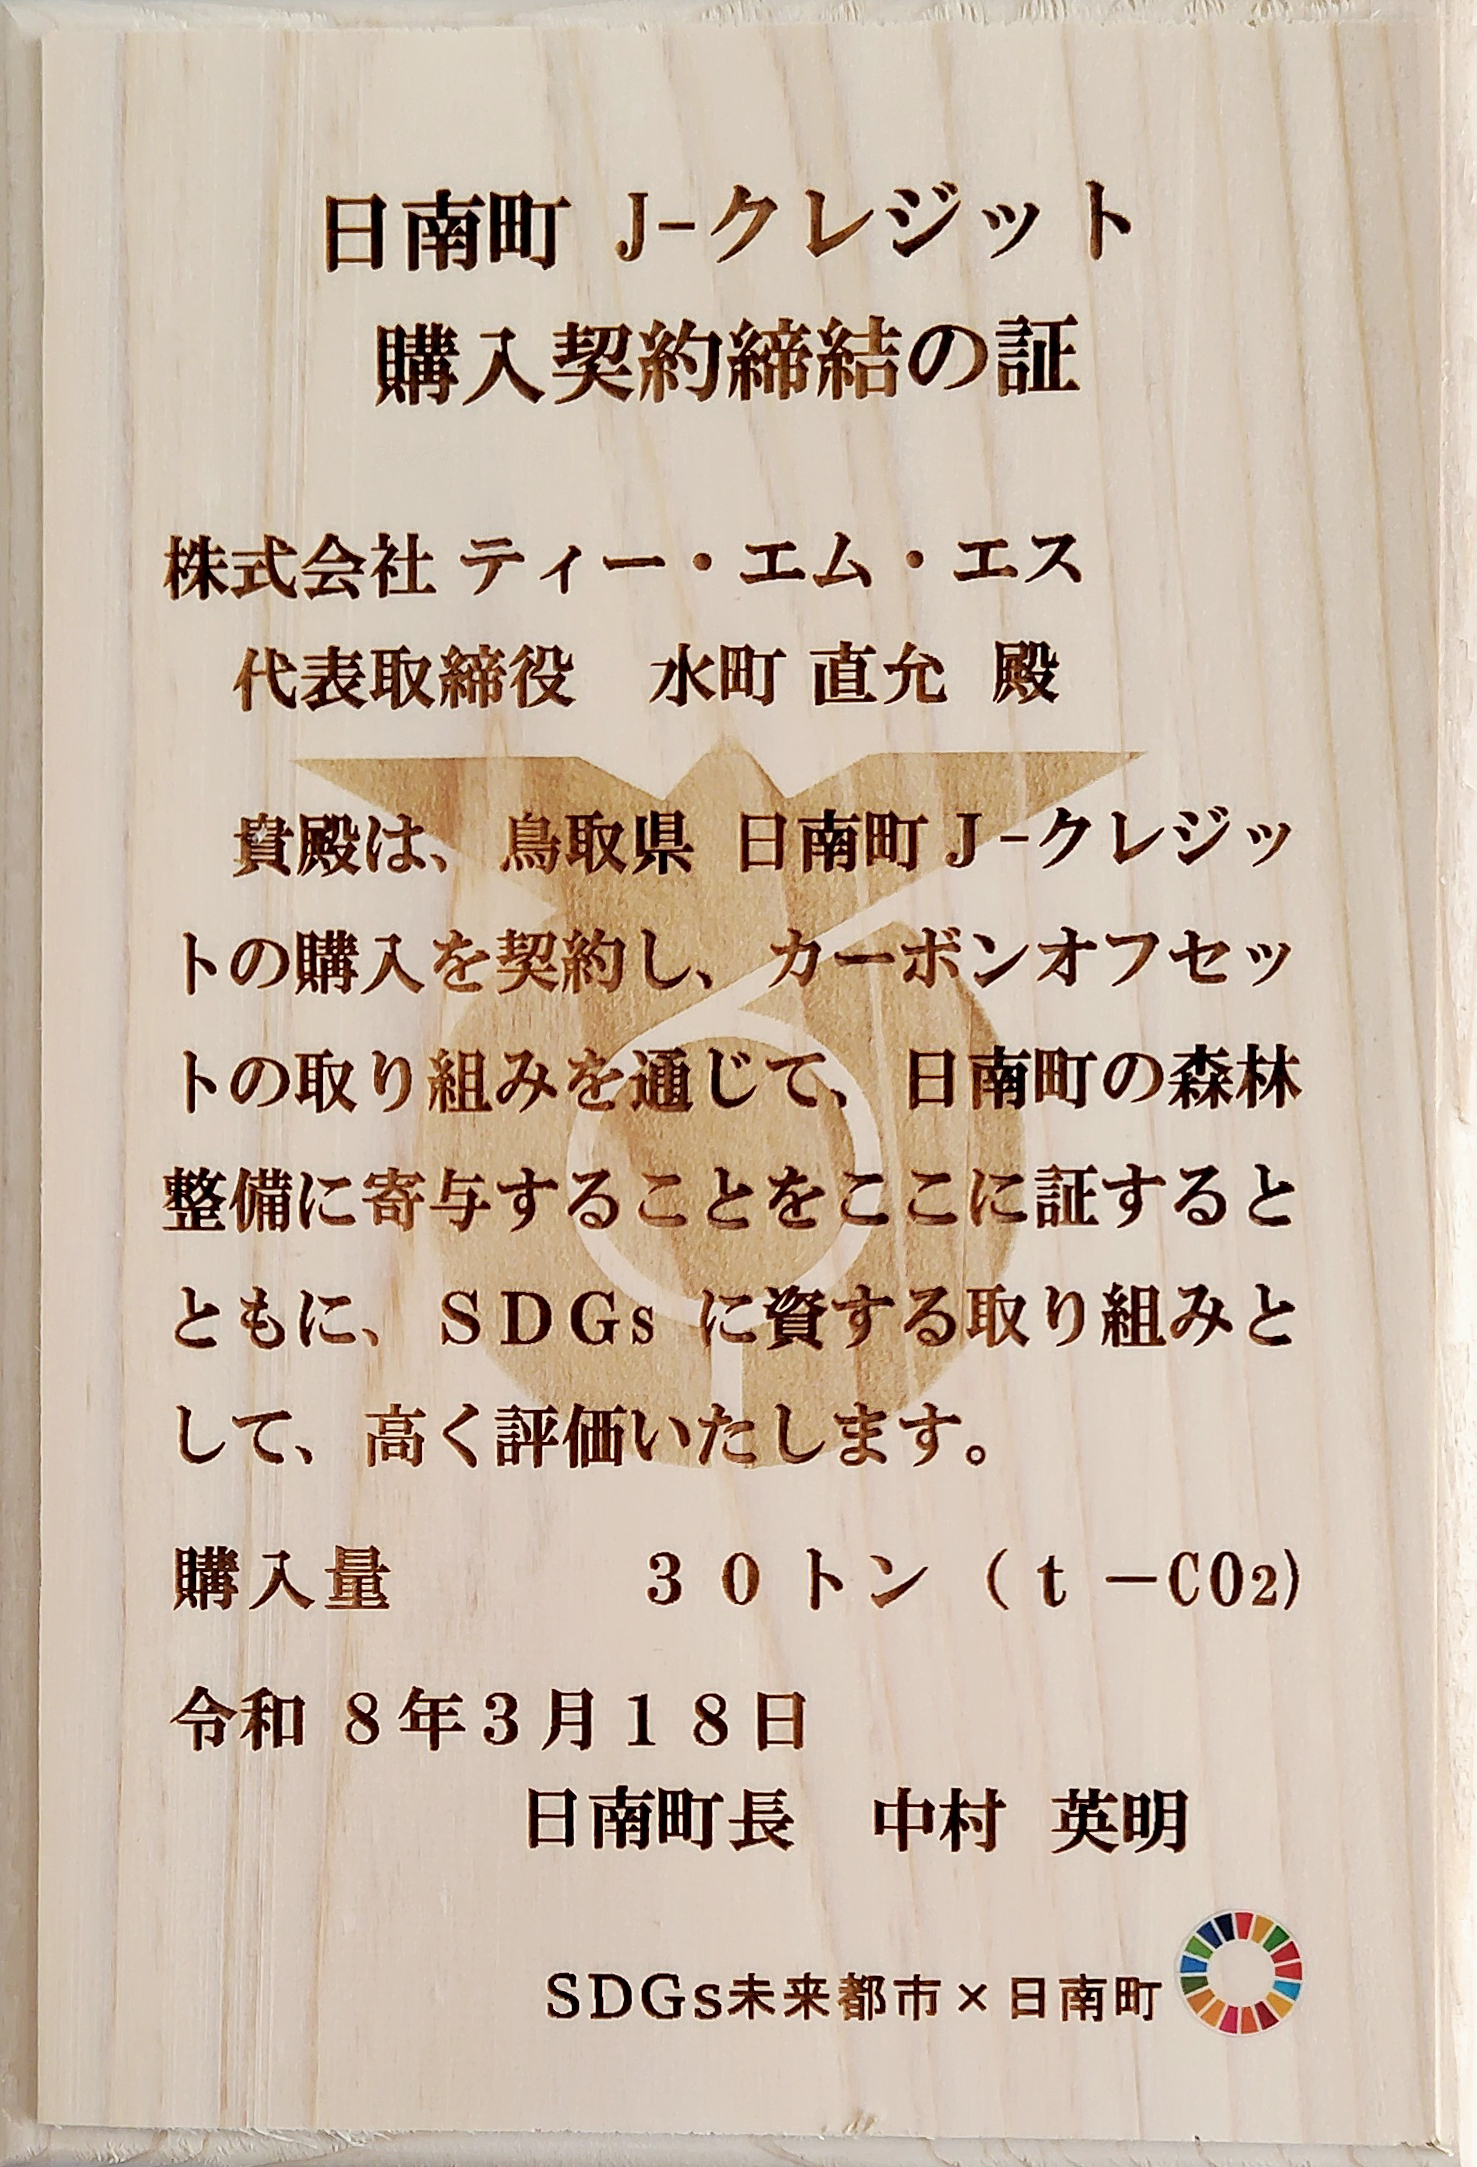 日南町 J-クレジット
購入契約締結の証
株式会社 ティー・エム・エス
代表取締役　水町 直允 殿
貴殿は、鳥取県 日南町 J-クレジッ
トの購入を契約し、カーボンオフセッ
トの取り組みを通じて、日南町の森林
整備に寄与することをここに証すると
ともに、ＳＤＧs に資する取り組みと
して、高く評価いたします。
購入量　３０トン（ｔ－CO2)
令和 ８年３月１８日
日南町長　中村 英明
SDGs未来都市×日南町